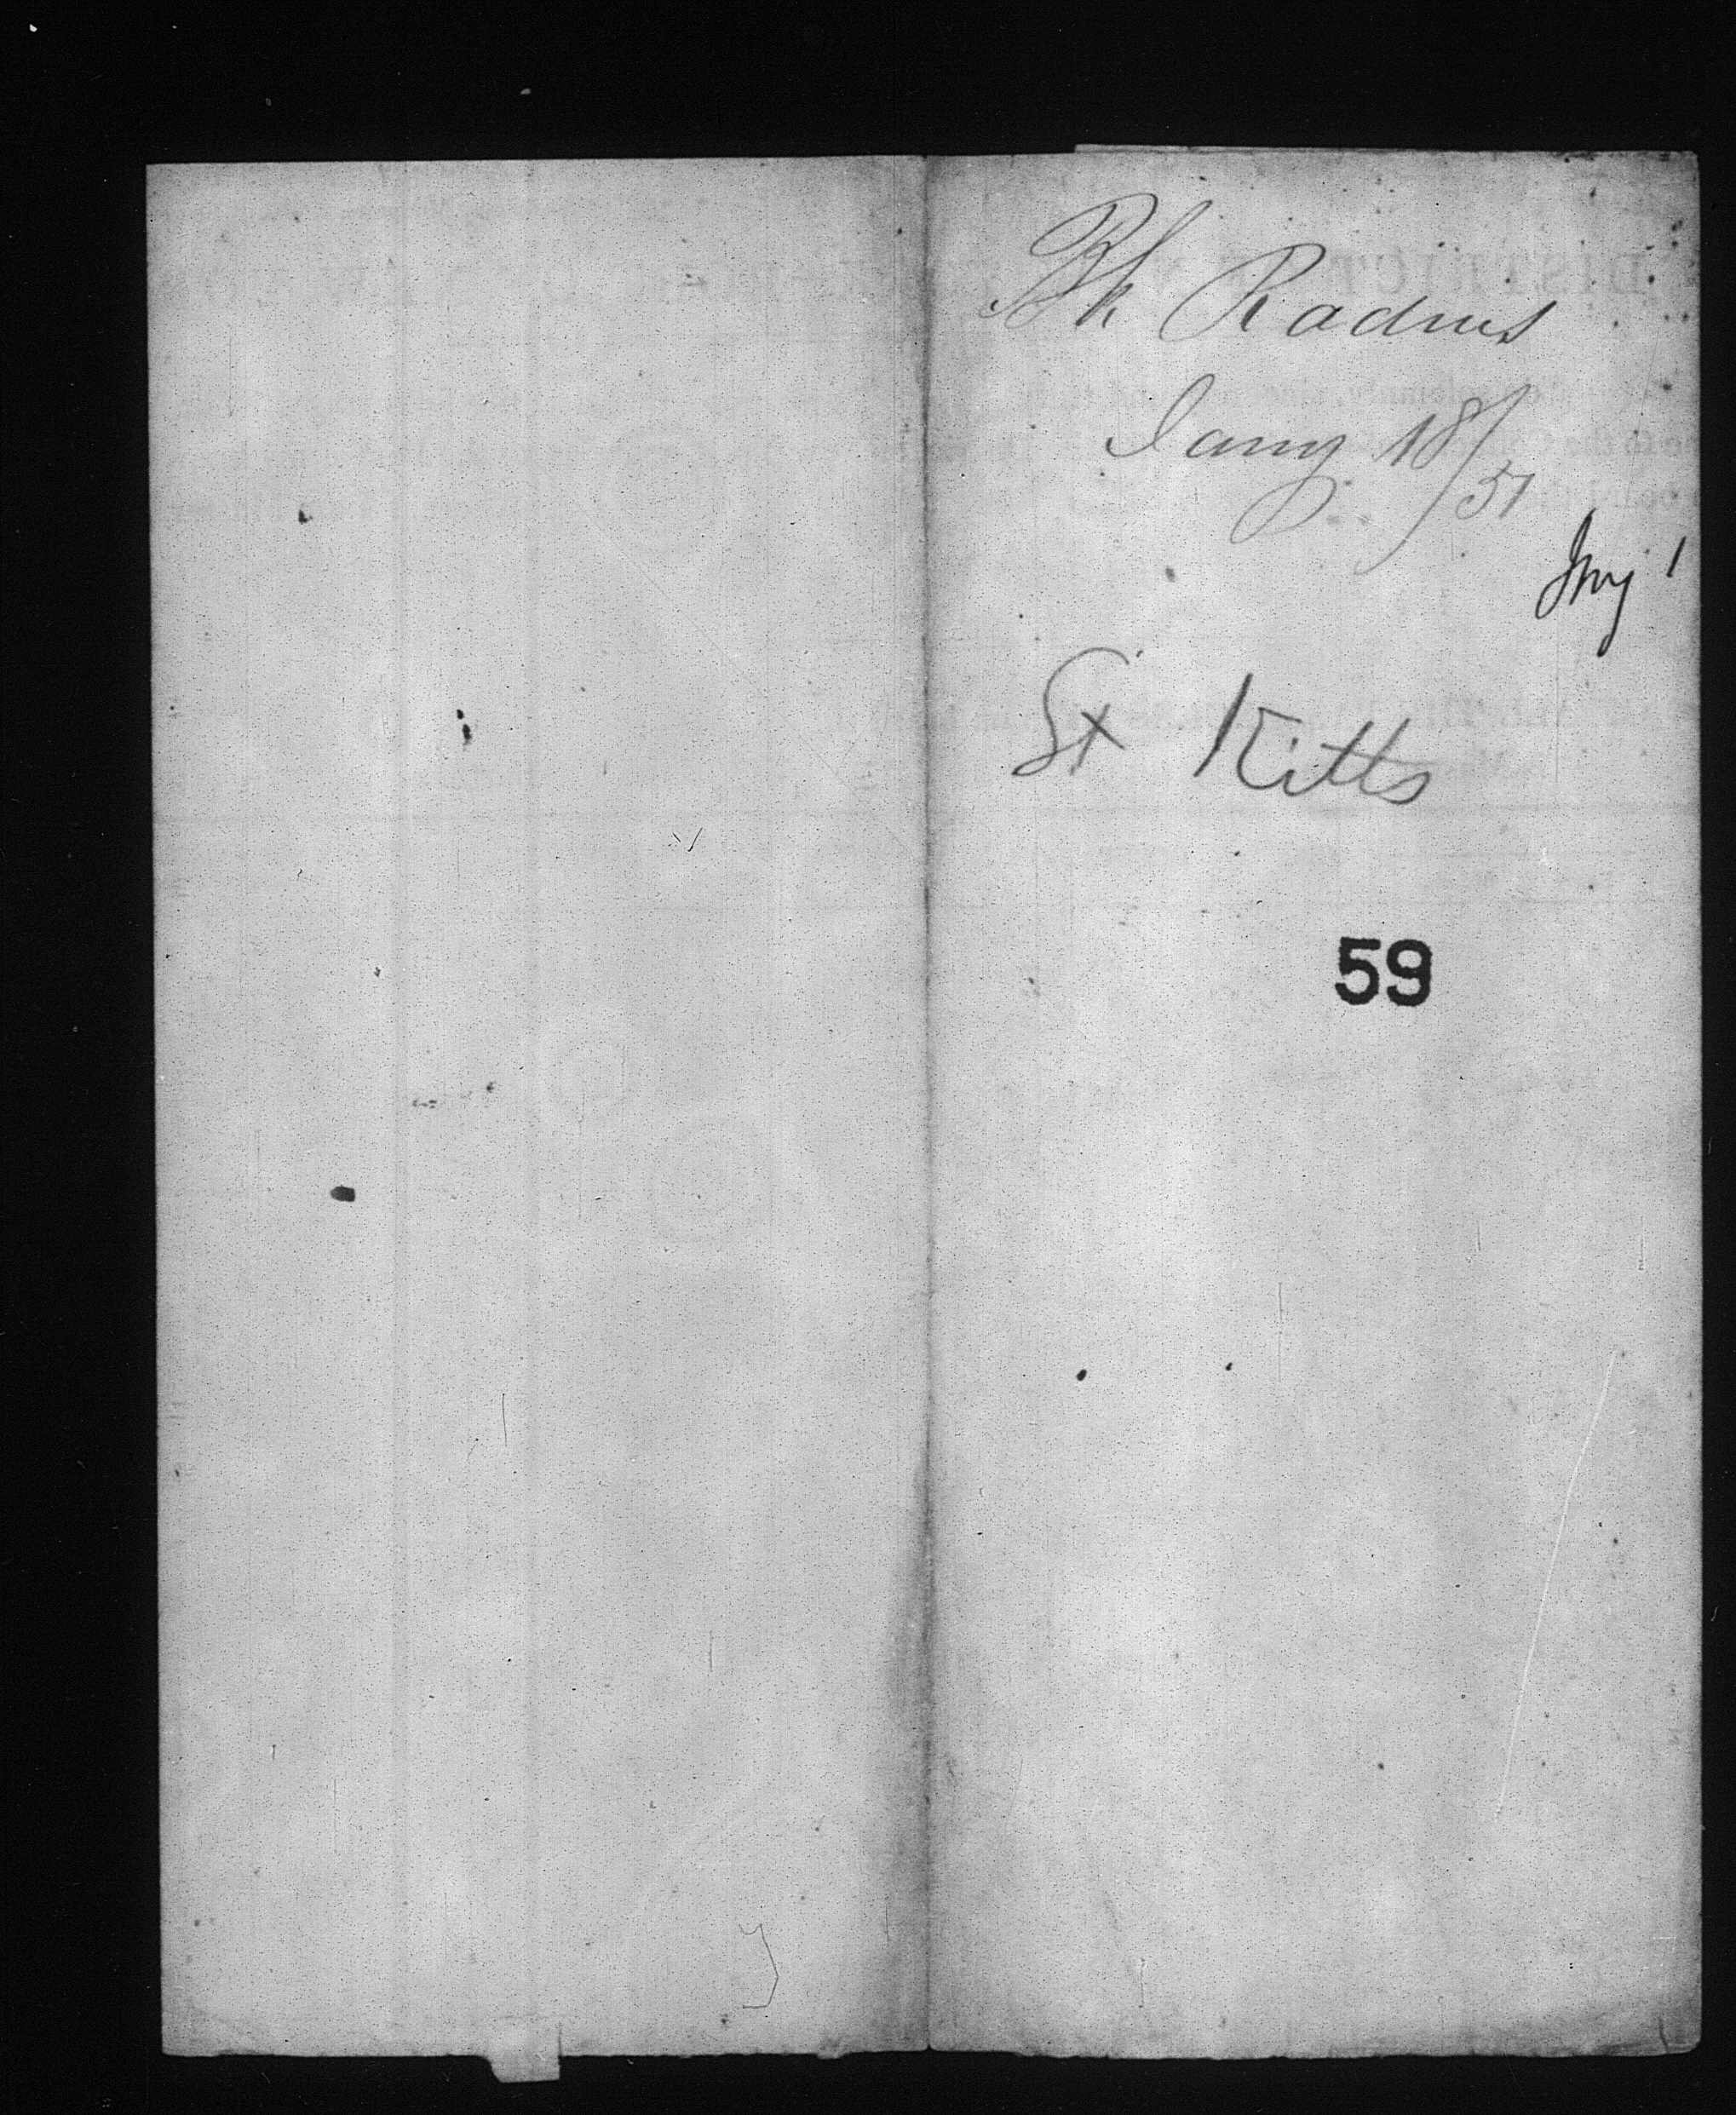 Bk Radius
Jany 18/51
Inv 1
St Kitts
59